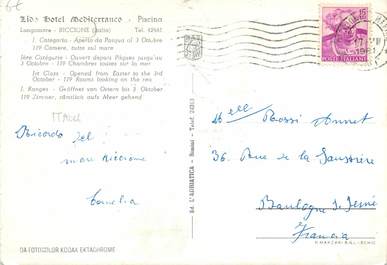 Lido Hotel Mediterraneo - Piscina
Lungomare - RICCIONE (Italia) Tel. 42461
I. Categoria - Aperto da Pasqua al 3 Ottobre
119 Camere, tutte sul mare
1ère Catégorie - Ouvert depuis Pâques jusqu'au
3 Octobre - 119 Chambres toutes sur la mer
1st Class - Opened from Easter to the 3rd
October - 119 Rooms looking on the sea
I. Ranges - Geöffnet von Ostern bis 3 Oktober
119 Zimmer, sämtlich aufs Meer gehend
ITALIE
Ricordo del
mare Riccione
Cornelia
DA FOTOCOLOR KODAK EKTACHROME
Ed. L'ADRIATICA - Rimini - Telef.
15
POSTE ITALIANE
1961
Melle Rossi Annet
36, Rue de la Saussière
Boulogne s/ Seine
Francia